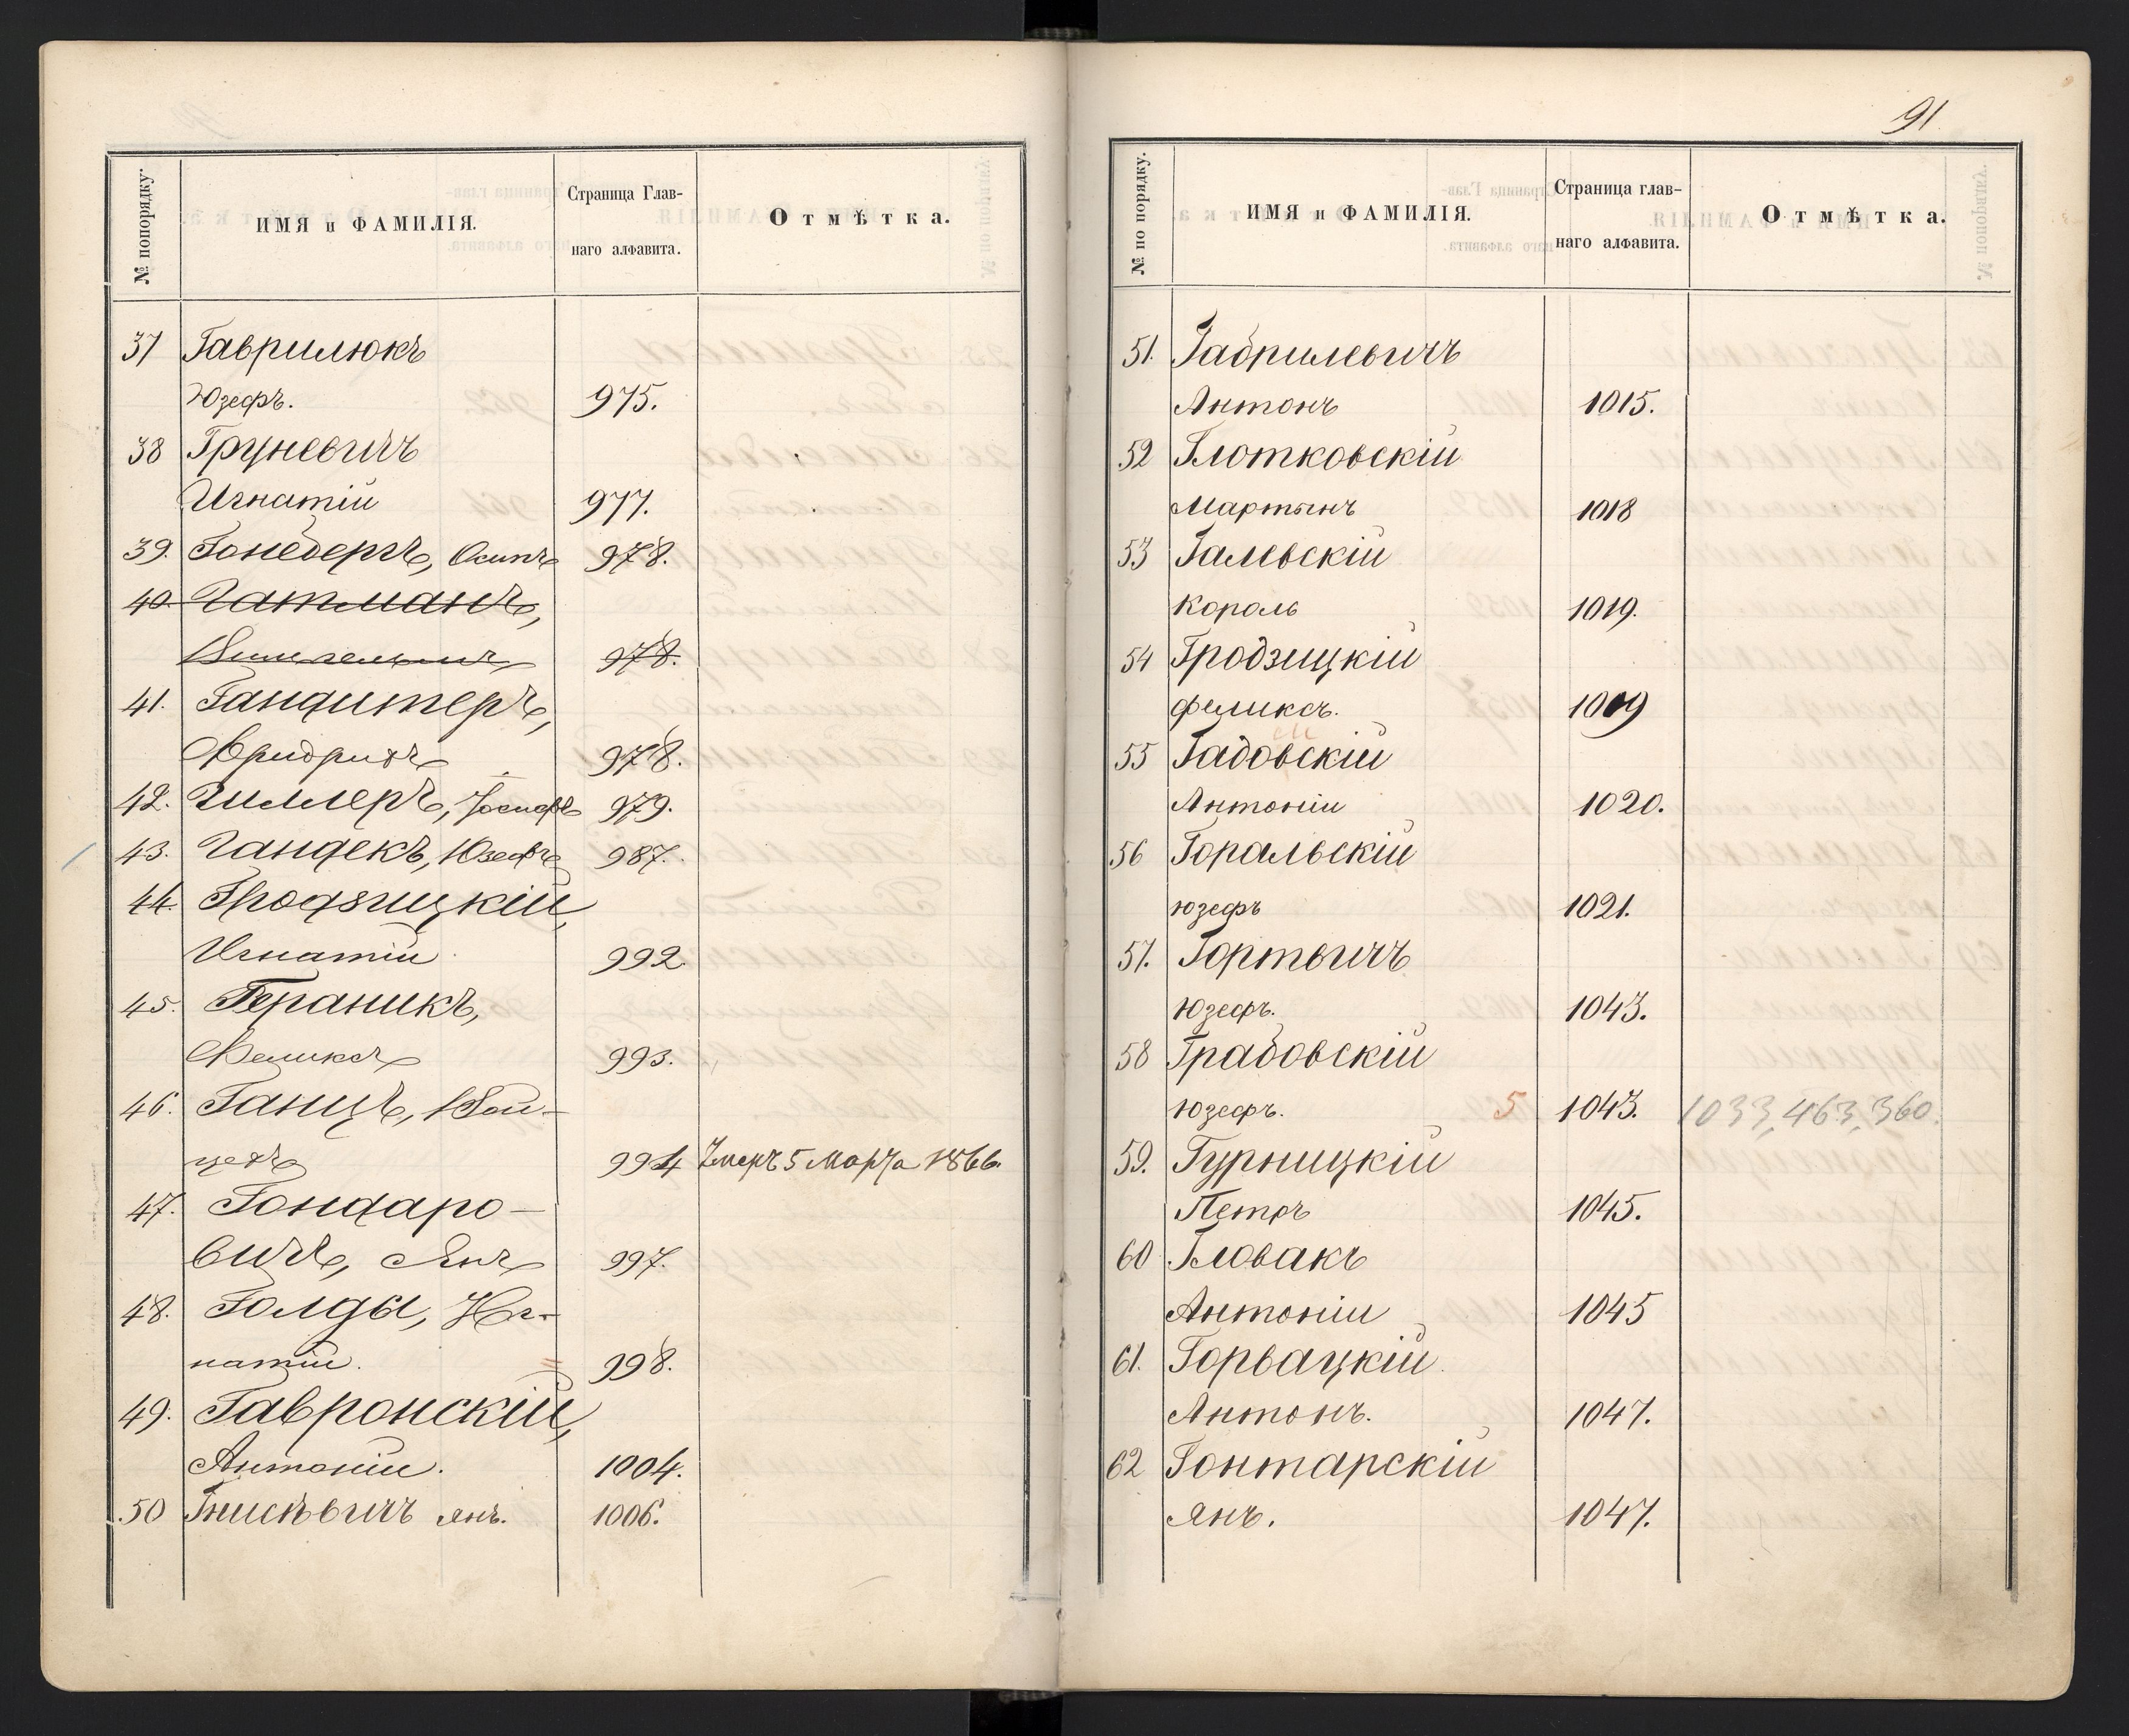 № попорядку.
ИМЯ и ФАМИЛІЯ.
Страница Глав-
наго алфавита.
Отмѣтка.
37 Гаврилюкъ
Юзефъ. 975.
38 Груневичъ
Игнатій 977.
39. Гонебергъ, Осипъ 978.
40. Гатманъ,
Вильгельмъ 978.
41. Гандитеръ,
Фридрихъ 978.
42. Гиллеръ, Іосифъ 979.
43. Гандекъ, Юзефъ 987.
44. Гродзицкій,
Игнатій 992.
45. Гераникъ,
Феликсъ 993.
46. Ганцъ, Вой-
цехъ 994 Умеръ 5 Марта 1866.
47. Гондаро-
вичъ, Янъ 997.
48. Голды, Иг-
натій. 998.
49. Гавронскій,
Антоній. 1004.
50 Гнисѣвичъ Янъ. 1006.
91.
№ по порядку.
ИМЯ и ФАМИЛІЯ.
Страница глав-
наго алфавита.
Отмѣтка.
51. Габрилевичъ
Антонъ 1015.
52 Глотковскій
Мартынъ 1018
53 Галевскій
Король 1019.
54 Гродзицкій
Феликсъ. 1019
55 Гадовскій
Антоній 1020.
56 Горальскій
Юзефъ 1021.
57. Гортвичъ
Юзефъ. 1043.
58 Грабовскій
Юзефъ. 5 1043. 1033, 463, 360.
59. Гурницкій
Петръ 1045.
60 Гловакъ
Антоній 1045
61. Горвацкій
Антонъ. 1047.
62 Гонтарскій
Янъ. 1047.